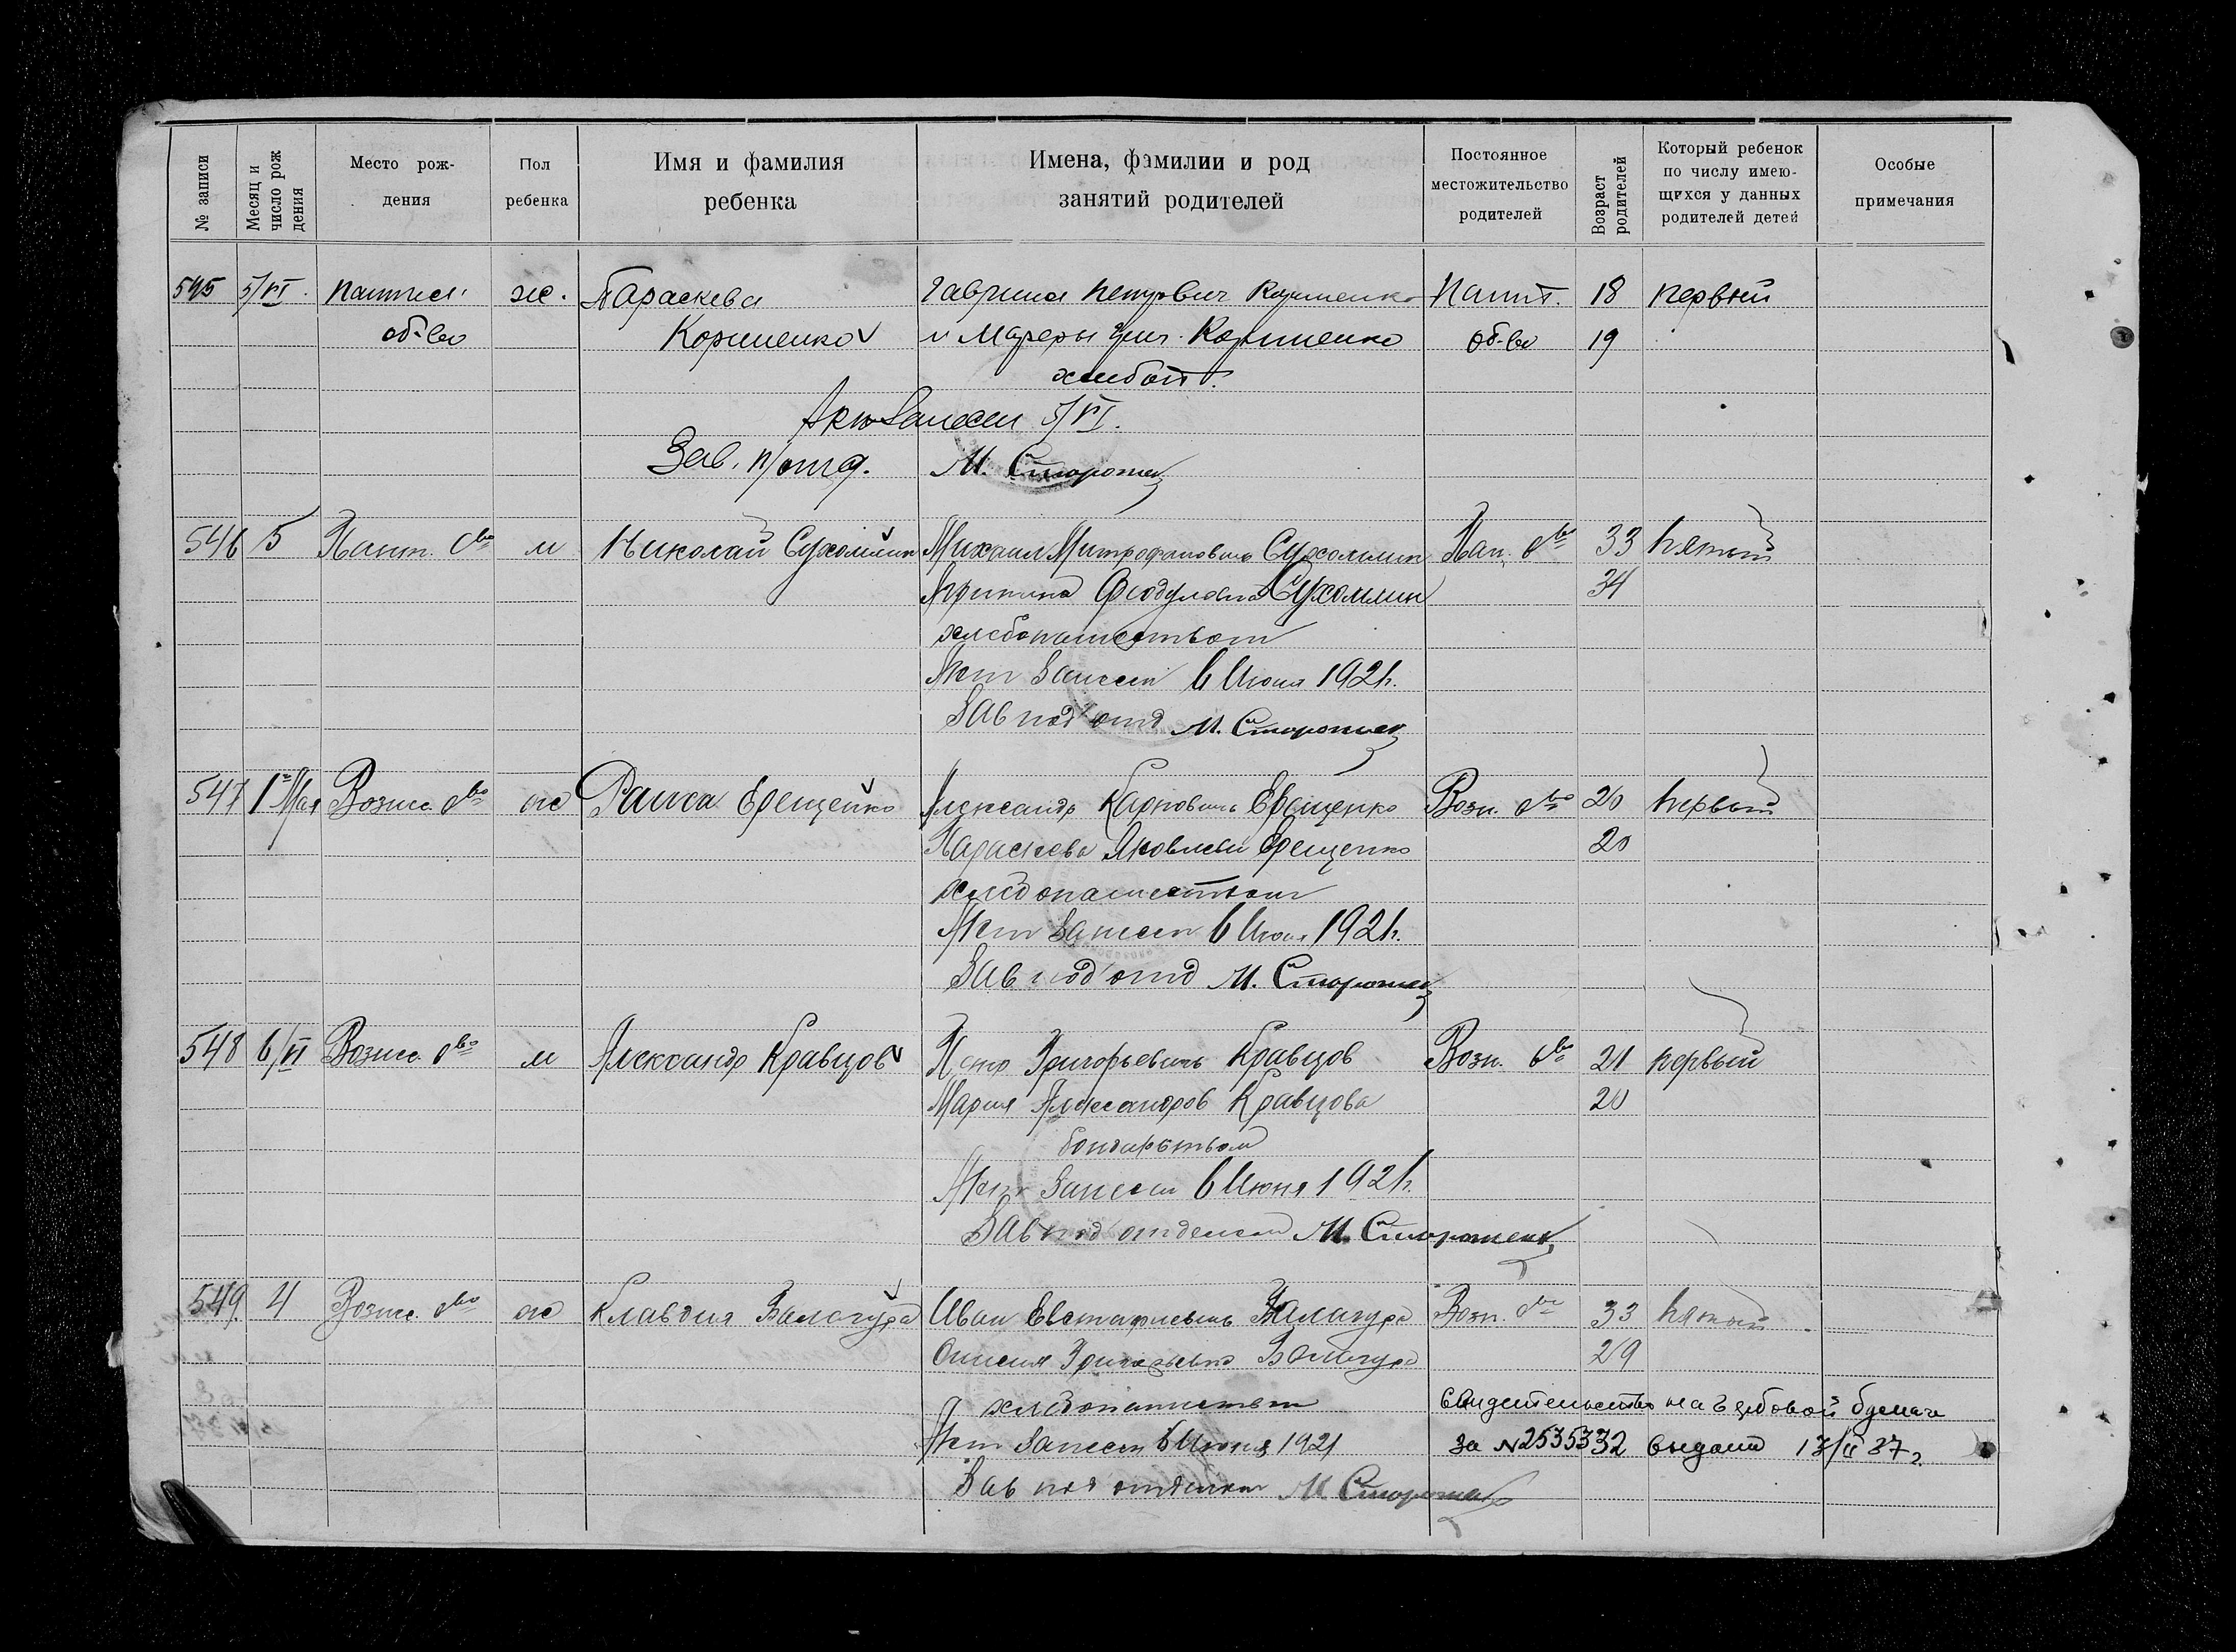 № записи
Месяц и число рож дения
Место рож-
дения
Пол
ребенка
Имя и фамилия
ребенка
Имена, фамилии и род
занятий родителей
Постоянное
местожительство
родителей
Возраст
родителей
Который ребенок
по числу имею-
щихся у данных
родителей детей
Особые
примечания
545 5/VI. ж. Параскева Гавриил Петрович Коршенко Пант. 18 первый
об-во Коршенко и Григ. Коршенко об-во 19
хлебоп.
Акт занесен 5/VI.
Зав. п/отд. М. Стороженко
546 5 Пант. о-во м Николай Сухомлин Михаил Митрофанович Сухомлин Пан. о-во 33 пятый
Феодуловна Сухомлин 34
хлебопашеством
Акт занесен 6 Июня 1921 г.
Зав под отд М. Стороженко
547 1го Мая Вознес. о-во ж Раиса Ерещенко Александр Карпович Ерещенко Возн. о-во 20 первый
Параскева Яковлева Ерещенко 20
хлебопашеством
Акт занесен 6 Июня 1921 г.
Зав под отд М. Стороженко
548 6/VI Вознес. о-во м Александр Кравцов Петр Григорьевич Кравцов Возн. о-во 21 первый
Мария Александров Кравцова 20
бондарством
Акт занесен 6 Июня 1921 г.
Зав под отделом М. Стороженко
549. 4 Вознес. о-во ж Клавдия Балагура Иван Евстафиевич Балагура Возн. о-во 33 пятый
Григорьевна Балагура 29
хлебопашеством Свидетельство на гербовой бумаге
Акт занесен 6 Июня 1921 за №2535332 выдано 13/II 37 г.
Зав под отделом М. Стороженко